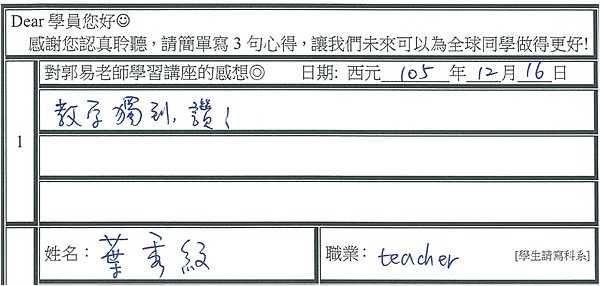 Dear 學員您好☺
感謝您認真聆聽，請簡單寫 3 句心得，讓我們未來可以為全球同學做得更好!
1 對郭易老師學習講座的感想◎ 日期: 西元 105 年 12 月 16 日
教學獨到，讚！
姓名： 葉秀紋 職業： teacher [學生請寫科系]